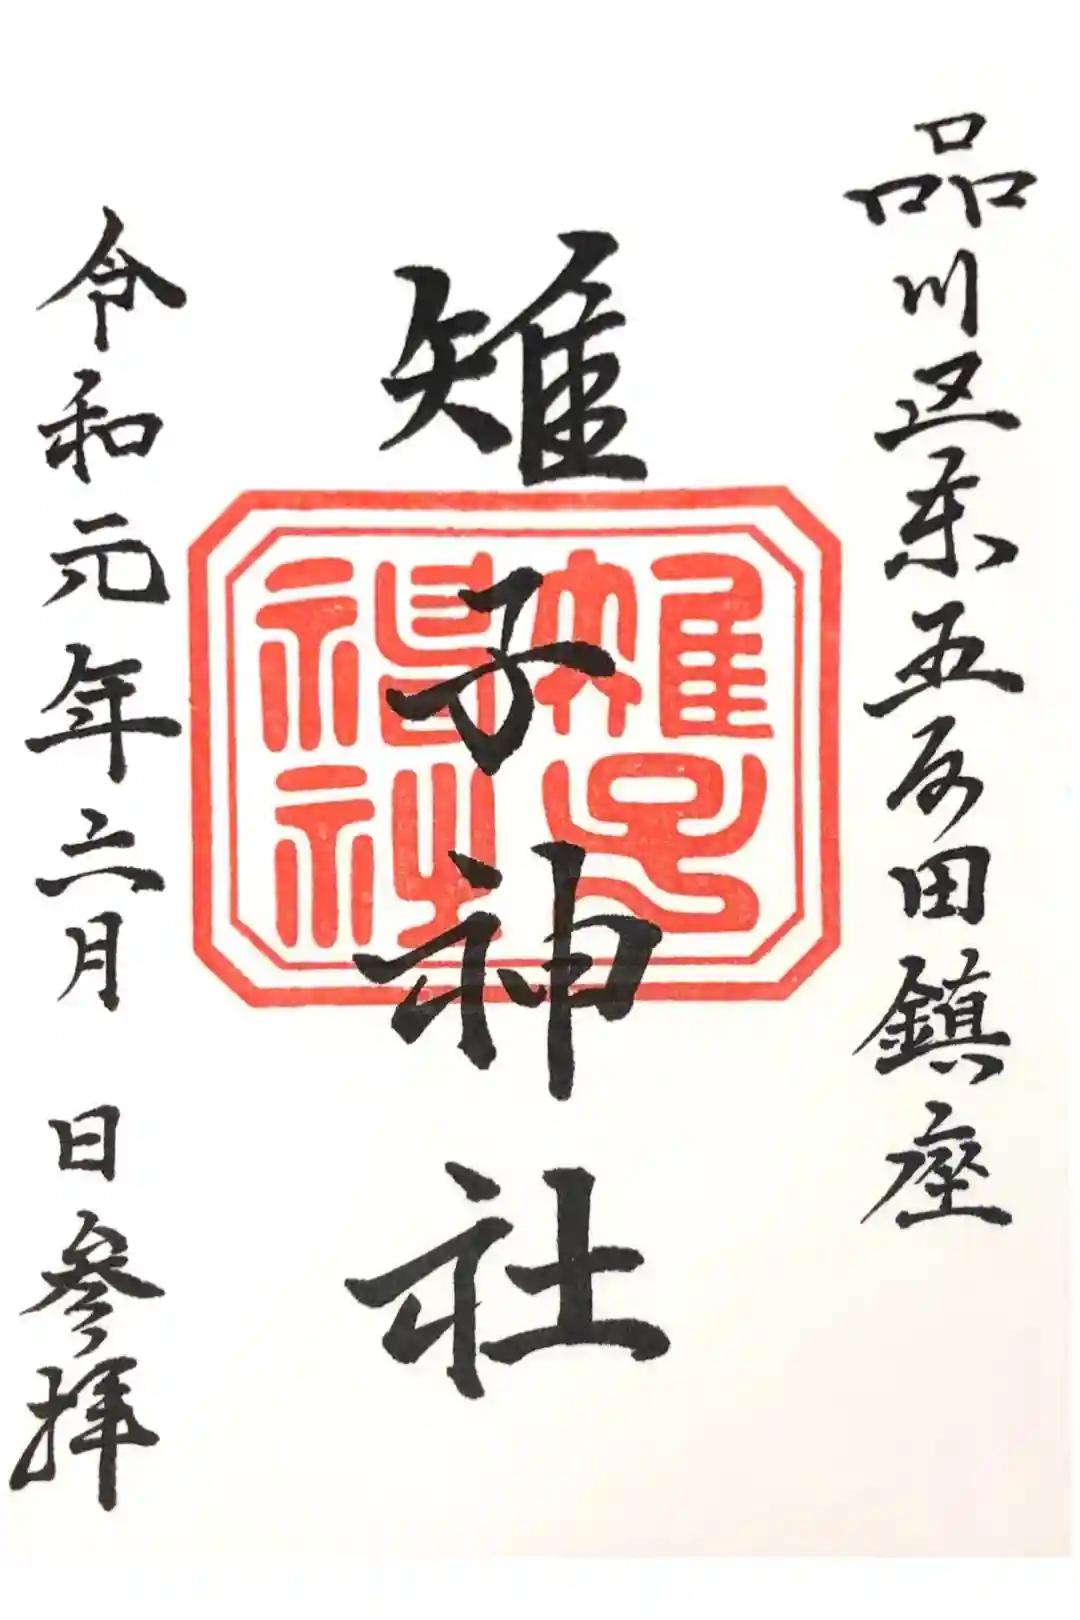 品川区東五反田鎮座
雉子神社
雉子
神社
令和元年六月 日参拝